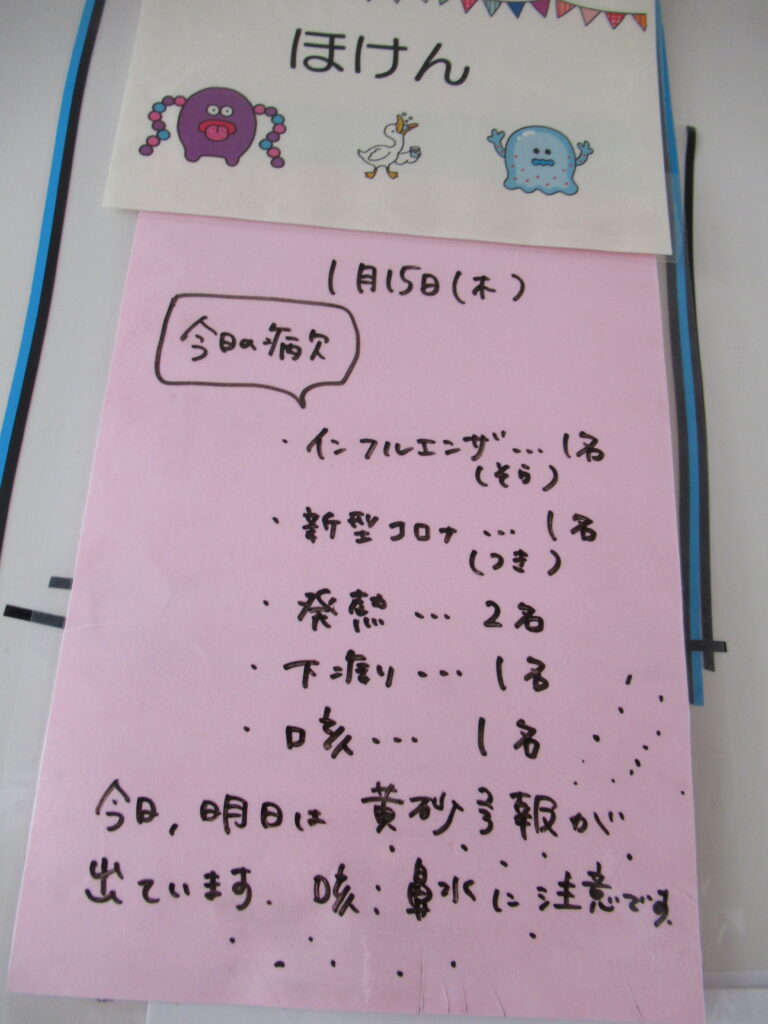 ほけん
1月15日(木)
今日の病欠
・インフルエンザ…1名
(そら)
・新型コロナ…1名
(つき)
・発熱…2名
・下痢り…1名
・咳…1名
今日,明日は黄砂予報が
出ています.咳:鼻水に注意です.